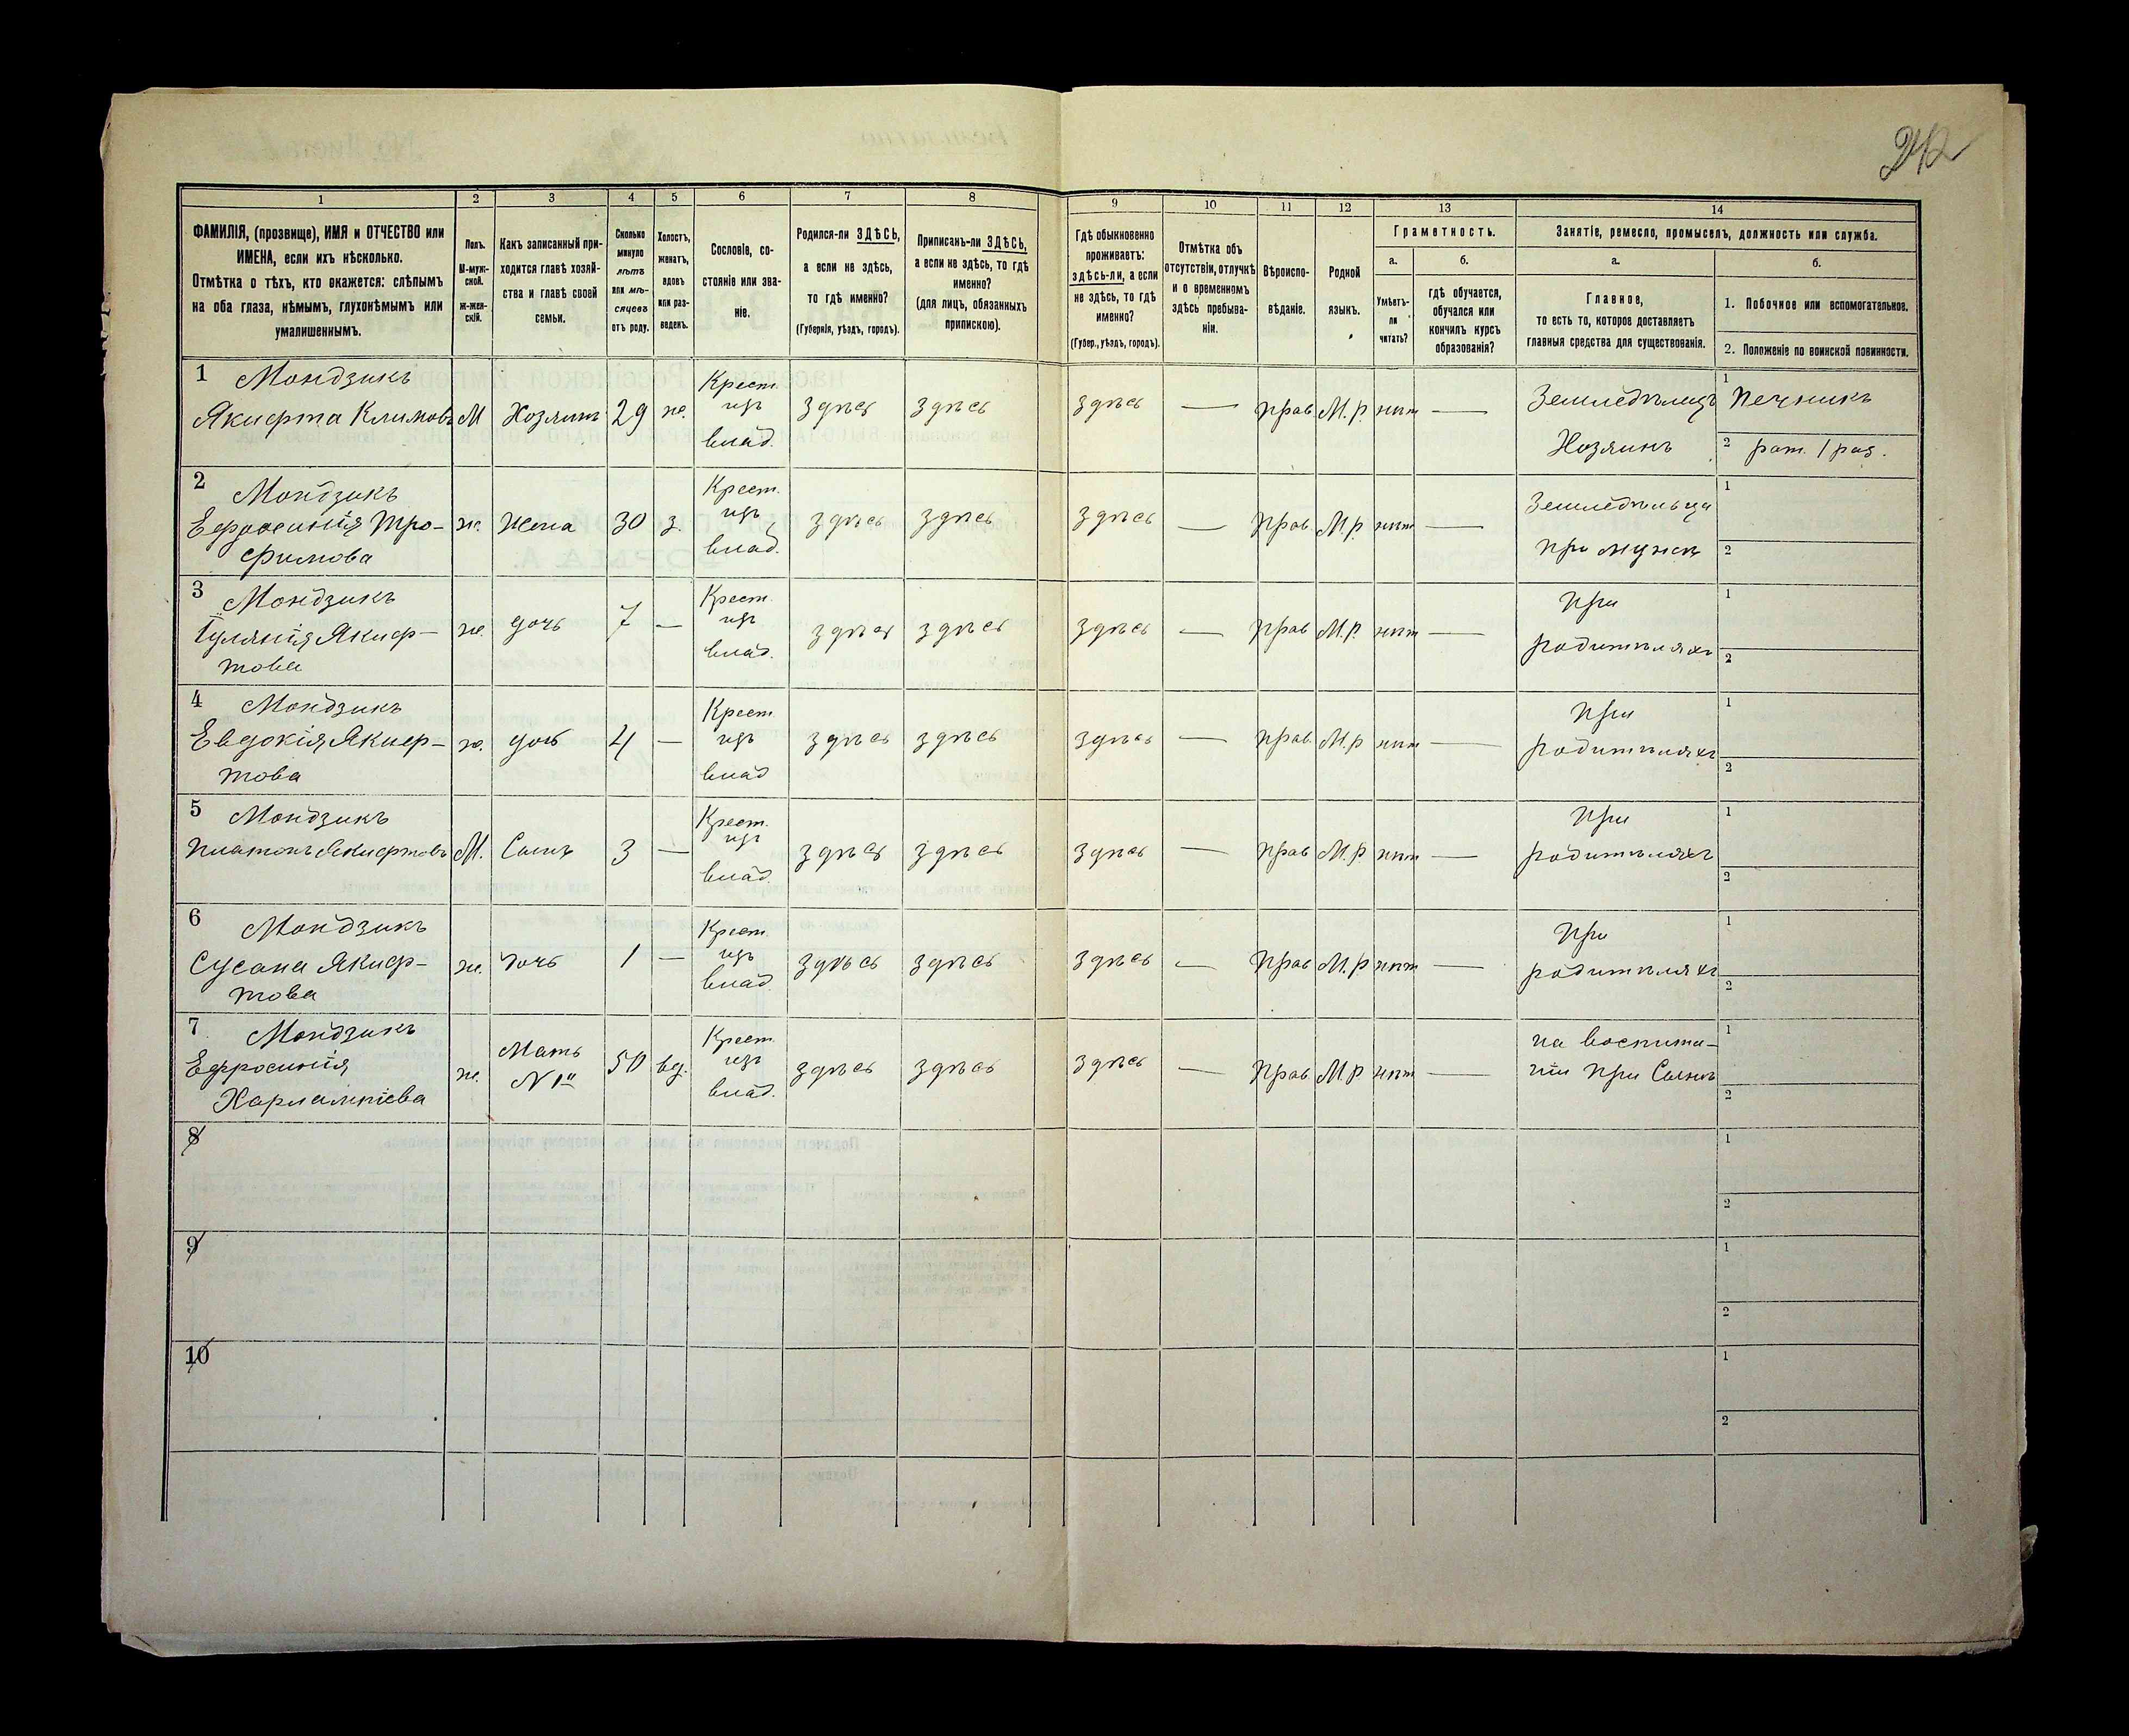 242
1 2 3 4 5 6 7 8 9 10 11 12 13 14
ФАМИЛІЯ, (прозвище), ИМЯ и ОТЧЕСТВО или
ИМЕНА, если ихъ нѣсколько.
Отмѣтка о тѣхъ, кто окажется: слѣпымъ
на оба глаза, нѣмымъ, глухонѣмымъ или
умалишеннымъ.
Полъ.
М-муж-
ской.
Ж-жен-
скій.
Какъ записанный при-
ходится главѣ хозяй-
ства и главѣ своей
семьи.
Сколько
минуло
лѣтъ
или мѣ-
сяцевъ
отъ роду.
Холостъ,
женатъ,
вдовъ
или раз-
веденъ.
Сословіе, со-
стояніе или зва-
ніе.
Родился-ли ЗДѢСЬ,
а если не здѣсь,
то гдѣ именно?
(Губернія, уѣздъ, городъ).
Приписанъ-ли ЗДѢСЬ,
а если не здѣсь, то гдѣ
именно?
(для лицъ, обязанныхъ
припискою).
Гдѣ обыкновенно
проживаетъ:
здѣсь-ли, а если
не здѣсь, то гдѣ
именно?
(Губер., уѣздъ, городъ).
Отмѣтка объ
отсутствіи, отлучкѣ
и о временномъ
здѣсь пребыва-
ніи.
Вѣроиспо-
вѣданіе.
Родной
языкъ.
Грамотность.
а.
Умѣетъ-
ли
читать?
б.
гдѣ обучается,
обучался или
кончилъ курсъ
образованія?
Занятіе, ремесло, промыселъ, должность или служба.
а.
Главное,
то есть то, которое доставляетъ
главныя средства для существованія.
б.
1. Побочное или вспомогательное.
2. Положеніе по воинской повинности.
1 Мондзикъ
Якифта Климовъ М Хозяинъ 29 ж. Крест. изъ влад. здѣсь здѣсь здѣсь — Прав. М.р. нѣт — Земледѣлецъ 1 Печникъ
Хозяинъ 2 рат. 1 раз.
2 Мондзикъ
Ефросинія Тро- ж. Жена 30 з. Крест. изъ влад. здѣсь здѣсь здѣсь — Прав. М.р. нѣт — Земледѣльца 1
фимова при мужѣ 2
3 Мондзикъ
Іулянія Якиф- ж. дочь 7 — Крест. изъ влад. здѣсь здѣсь здѣсь — Прав М.р. нѣт — При 1
това родителяхъ 2
4 Мондзикъ
Евдокія Якиф- ж. доч 4 — Крест. изъ влад здѣсь здѣсь здѣсь — Прав. М.р нѣт — При 1
това родителяхъ 2
5 Мондзикъ
Платонъ Якифтовъ М. Сынъ 3 — Крест. изъ влад. здѣсь здѣсь здѣсь — Прав М.р. нѣт — При 1
родителяхъ 2
6 Мондзикъ
Сусана Якиф- ж. дочь 1 — Крест. изъ влад. здѣсь здѣсь здѣсь — Прав М.р нѣт — При 1
това родителяхъ 2
7 Мондзикъ
Ефросинія ж. Мать N 1й 50 вд. Крест. изъ влад. здѣсь здѣсь здѣсь — Прав М.р. нѣт — на воспита- 1
Харлампіева ніи при Сынѣ 2
8 1
2
9 1
2
10 1
2